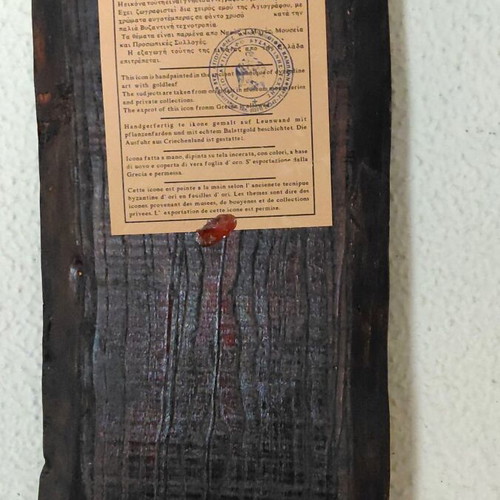 Έχει ζωγραφιστεί δια χειρός εμού της Αγιογράφου, με
χρώματα αυγατέμπερας σε φόντο χρυσό κατά την
παλιά Βυζαντινή τεχνοτροπία.
Τα θέματα είναι παρμένα απο Μουσεία
και Προσωπικές Συλλογές.
Η εξαγωγή ταύτης της απο Ελλάδα
επιτρέπεται.
This icon is handpainted in the ancient technique of byzantine
art with goldleaf
The subjects are taken from
and private collections.
The exprot of this icon from Greece is
Handgerfertig te ikone gemalt auf Leanwand mit
pflanzenfarden und mit echtem Balettgold beschichtet. Die
Ausfuhr aus Criechenland ist gestattei.
Icona fatta a mano, dipinta su tela incerata, con colori, a base
di uovo e coperta di vera foglia d' oro. S' esportazione dalla
Grecia e permessa.
Cette icone est peinte a la main selon l' ancienete tecnipus
byzantine d' ori en feuilles d' ori. Les themes sont dire des
icones provenant des musees, de bouyenes et de collections
privees. L' exportation de cette icone est permise.